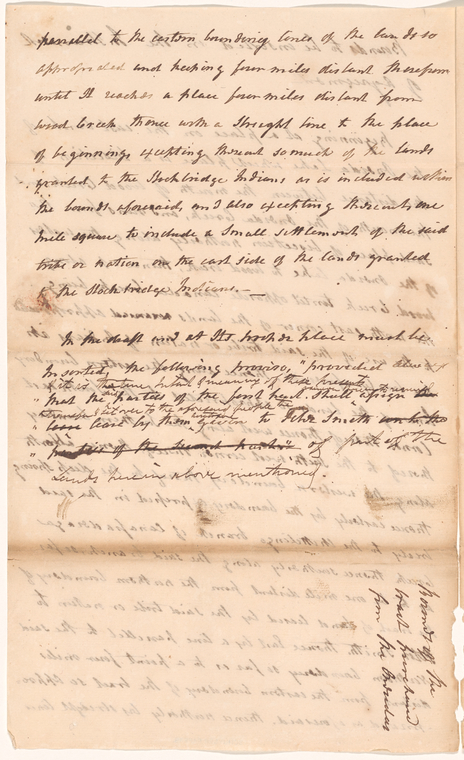 parallel to the eastern boundary lines of the lands so
appropriated and keeping four miles distant therefrom
until it reaches a place four miles distant from
wood Creek thence with a straight line to the place
of beginning, excepting thereout so much of the lands
granted to the Stockbridge Indians as is included within
the bounds aforesaid, and also excepting thereout one
mile square to include a small settlement of the said
tribe or nation on the east side of the lands granted
to the Stockbridge Indians.—
In the deed and at its proper place must be
Inserted, the following proviso, "provided
it is the true intent & meaning of these presents
" that the parties of the first part shall assign
transfer set over to the aforesaid people the
" lease by them given to Peter Smith
" parties of the second part" of part of the
Lands herein above mentioned.
Bounds of the
tract purchased
from the Oneidas